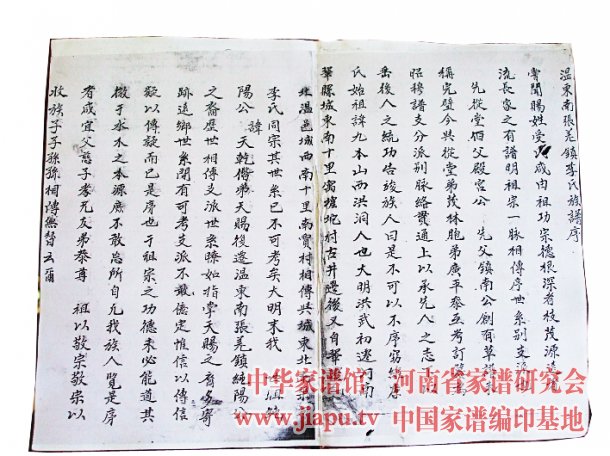 温東南張羌鎮李氏族譜序
嘗聞賜姓受氏咸由祖功宗德根深者枝茂源遠
流長家之有譜明祖宗一脈相傳序世系別支派
先從堂伯父殿宮公 先父鎮南公創有草
稱完璧今共從堂弟茂林胞弟廣平泰互考訂
昭穆譜支分派別脈絡貫通上以承先人之志下以
岳後人之統功告竣族人曰是不可以不序
氏始祖諱九本山西洪洞人也大明洪武初遷河南
鞏縣城東南十里 村古井 後又自鞏
北温邑城西南十里南賈村相傳共城東北
李氏同宗其世系已不可考矣大明末我 始祖
陽公諱 天乾傳弟天賜後遷温東南張羌鎮純陽公
之裔歷世相傳支派世系瞭如指掌天賜之裔多寄
跡遠鄉世系間有可考支派不敢憶定惟信以傳信
疑以傳疑而已是序也于祖宗之功德未必能道其
微于水木之本源庶不敢忘所自允我族人覽是序
者咸宜父慈子孝兄友弟恭尊 祖以敬宗敬宗以
收族子子孫孫相傳無替云爾
中华家谱馆 河南省家谱研究会
www.jiapu.tv 中国家谱编印基地